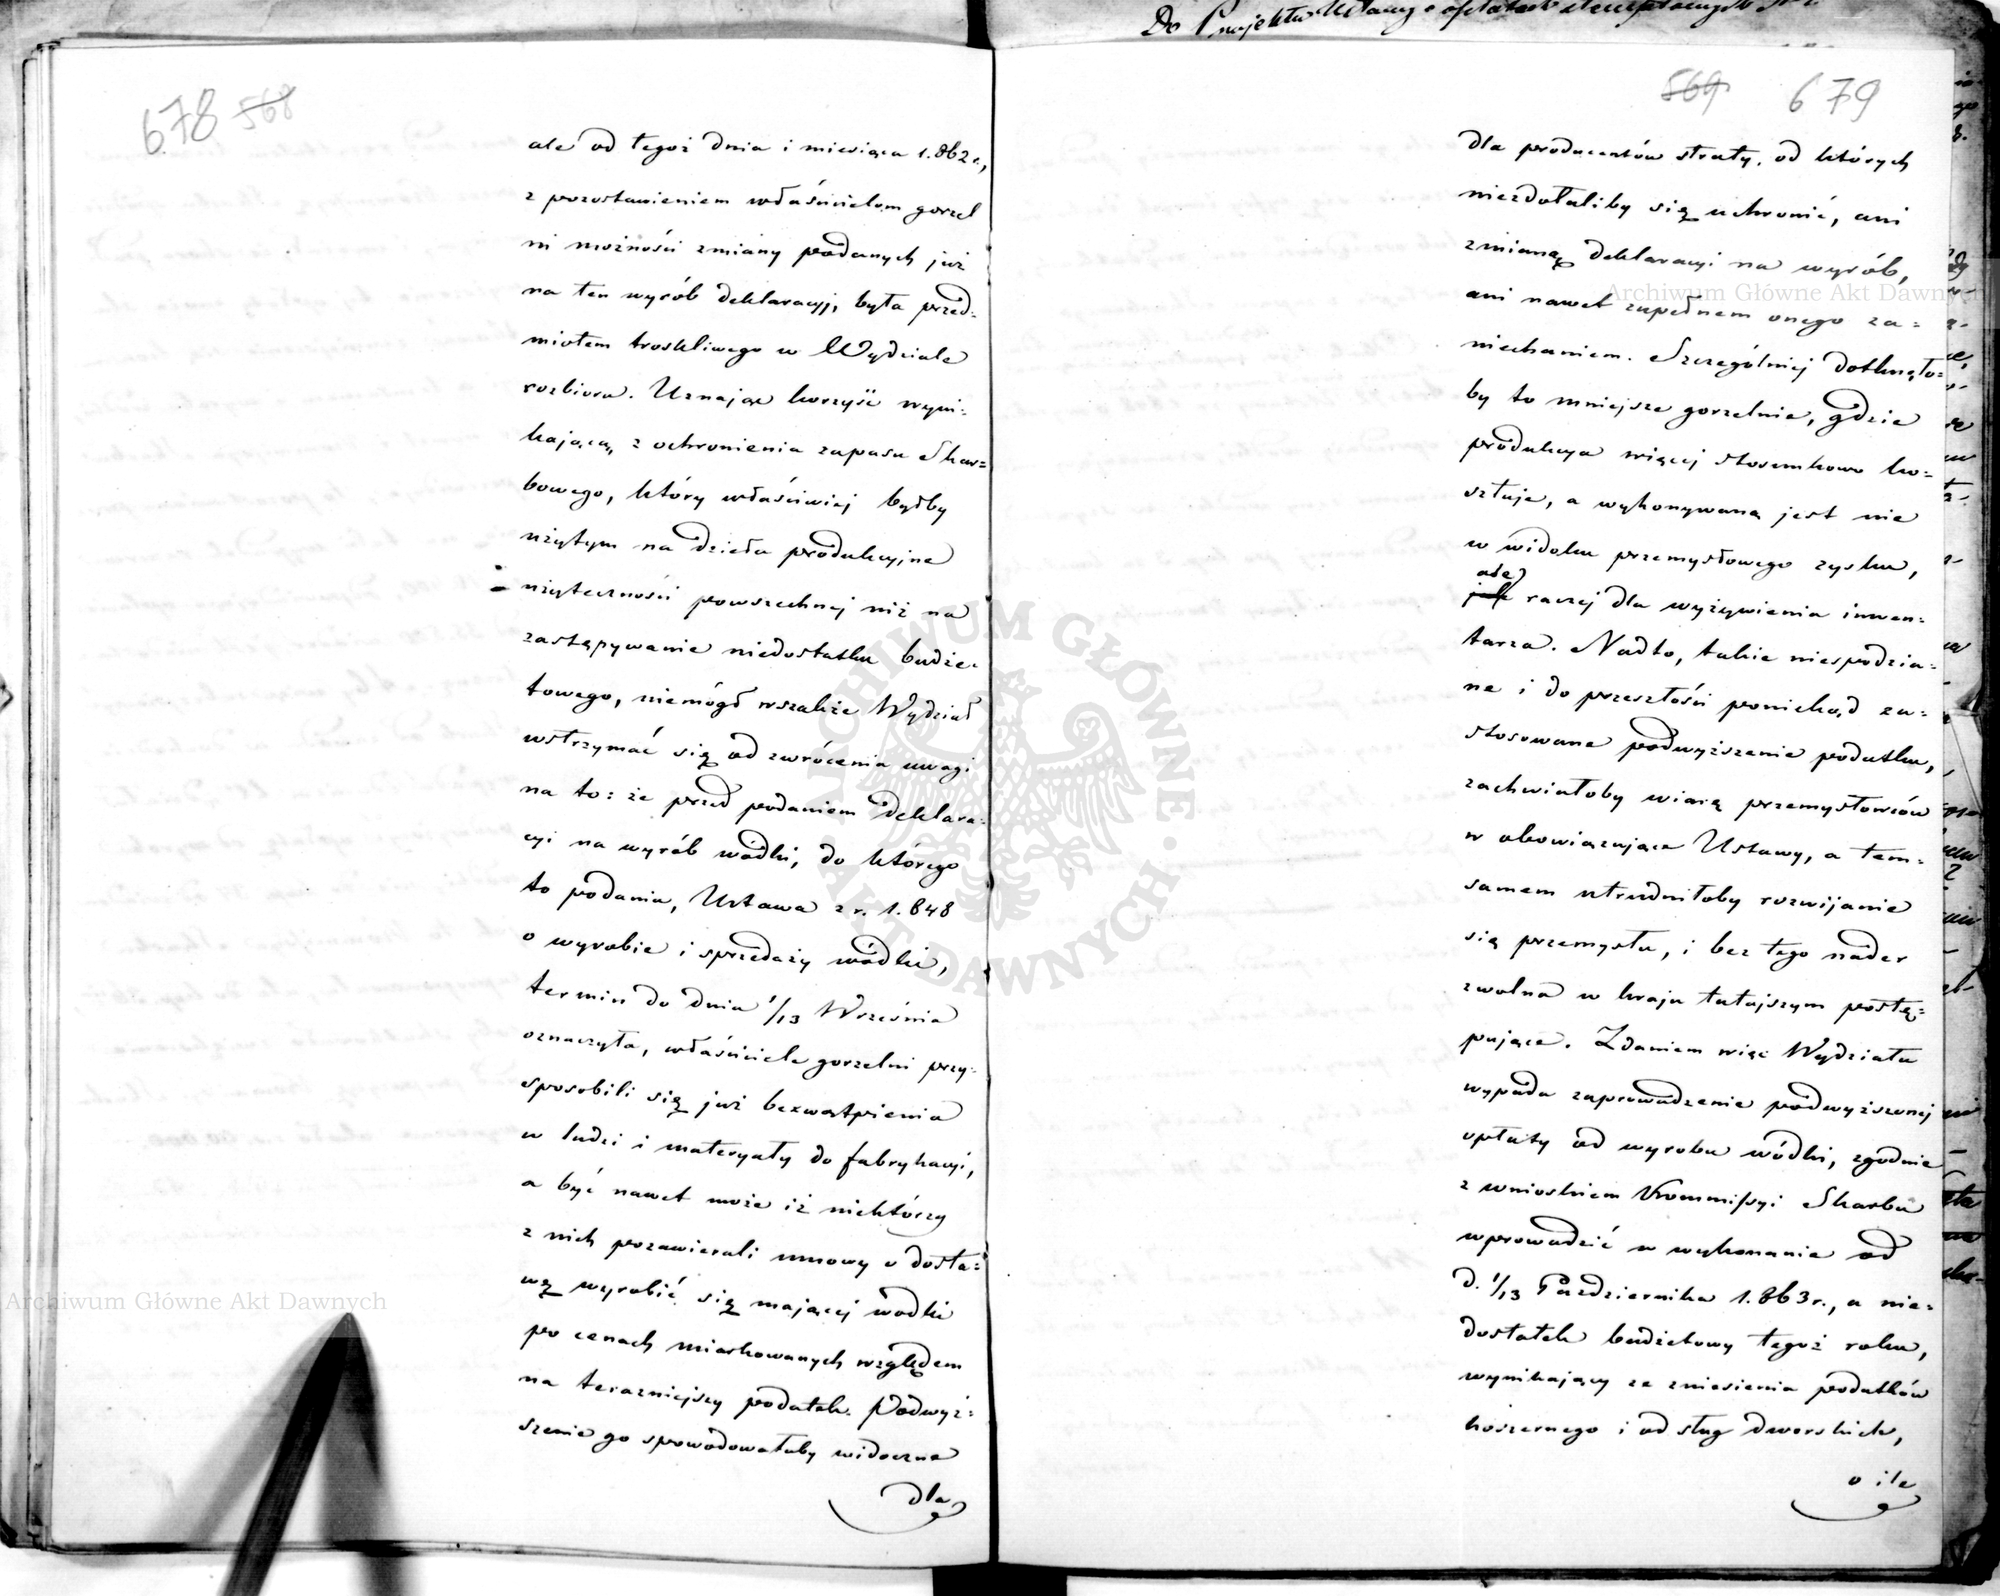 Do Projektu Ustawy o opłatach stemplowych
678 568
ale od tegoż dnia i miesiąca 1.862 r.,
z pozostawieniem właścicielom gorzel
ni możności zmiany podanych już
na ten wyrób deklaracyj, była przed=
miotem troskliwego w Wydziale
rozbioru. Uznając korzyść wyni=
kającą, z ochronienia zapasu Skar=
bowego, który właściwiej byłby
użytym na dzieła produkcyjne
użyteczności powszechnej niż na
zastępywanie niedostatku budże=
towego, niemógł wszakże Wydział
wstrzymać się od zwrócenia uwagi
na to: że przed podaniem deklara=
cyi na wyrób wódki, do którego
to podania, Ustawa z r. 1.848
o wyrobie i sprzedaży wódki,
termin do dnia 1/13 Września
oznaczyła, właściciele gorzelni przy=
sposobili się już bezwątpienia
w ludzi i materyały do fabrykacyi,
a być nawet może iż niektórzy
z nich pozawierali umowy o dosta=
wę wyrobić się mającej wódki
po cenach miarkowanych względem
na teraźniejszy podatek. Podwyż=
szenie go spowodowałoby widoczne
dla
569 679
dla producentów straty, od których
niezdołaliby się uchronić, ani
zmianą deklaracyi na wyrób,
ani nawet zupełnem onego za=
niechaniem. Szczególniej dotknęło=
by to mniejsze gorzelnie, gdzie
produkcya więcej stosunkowo ko=
sztuje, a wykonywaną jest nie
w widoku przemysłowego zysku,
ale
jak raczej dla wyżywienia inwen=
tarza. Nadto, takie niespodzia=
ne i do przeszłości poniekąd za=
stosowane podwyższenie podatku,
zachwiałoby wiarę przemysłowców
w obowiązujące Ustawy, a tem=
samem utrudniłoby rozwijanie
się przemysłu, i bez tego nader
zwolna w kraju tutejszym postę=
pujące. Zdaniem więc Wydziału
wypada zaprowadzenie podwyższonej
opłaty od wyrobu wódki, zgodnie
z wnioskiem Kommissyi Skarbu
wprowadzić w wykonanie od
d. 1/13 Października 1.863 r., a nie=
dostatek budżetowy tegoż roku,
wynikający ze zniesienia podatków
koszernego i od sług dworskich,
o ile
Archiwum Główne Akt Dawnych
Archiwum Główne Akt Dawnych
ARCHIWUM GŁÓWNE AKT DAWNYCH